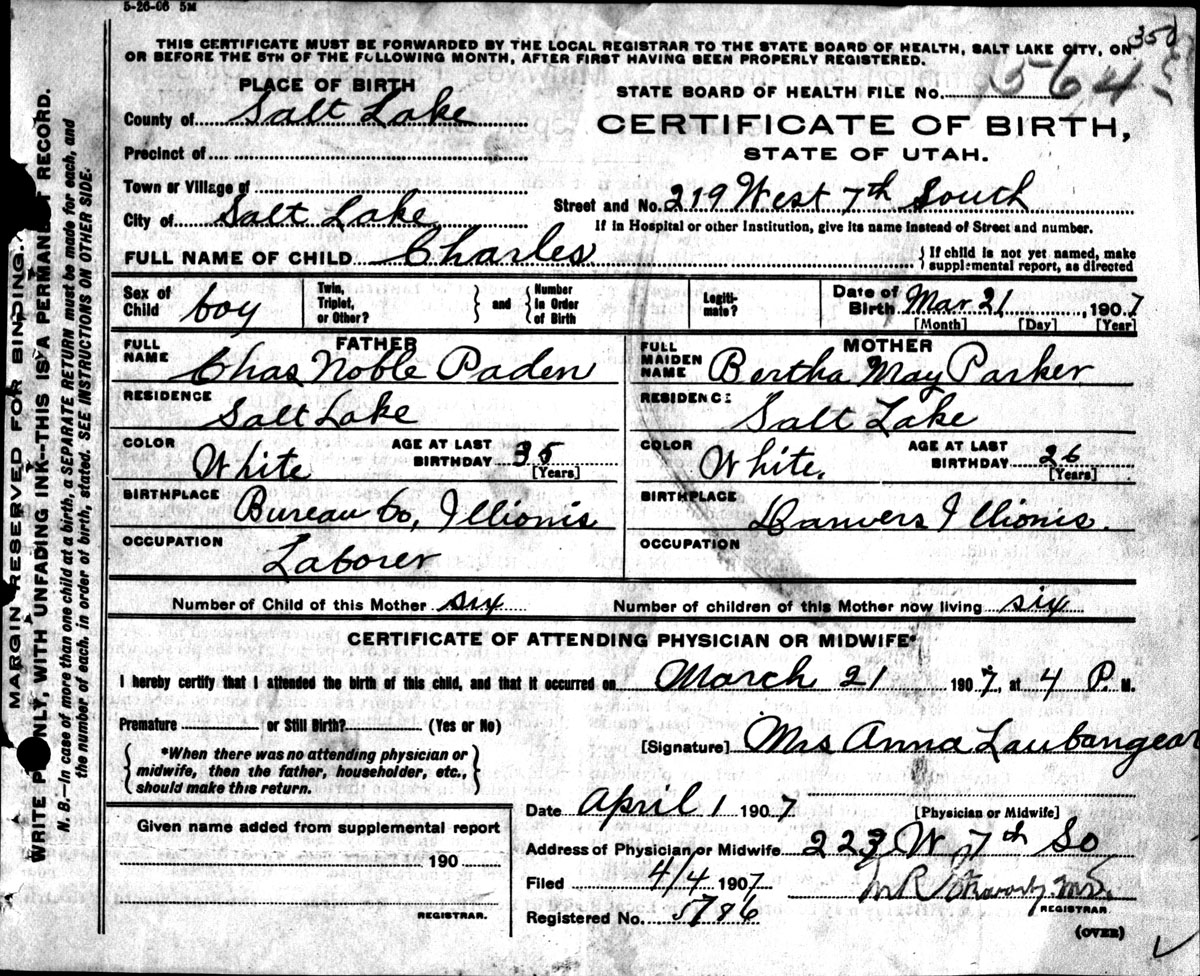 5-26-06 5M
THIS CERTIFICATE MUST BE FORWARDED BY THE LOCAL REGISTRAR TO THE STATE BOARD OF HEALTH, SALT LAKE CITY, ON
OR BEFORE THE 5TH OF THE FOLLOWING MONTH, AFTER FIRST HAVING BEEN PROPERLY REGISTERED.
350
564
PLACE OF BIRTH
STATE BOARD OF HEALTH FILE No.
County of Salt Lake
CERTIFICATE OF BIRTH,
STATE OF UTAH.
Precinct of
Town or Village of
Street and No. 219 West 7th South
City of Salt Lake
If in Hospital or other Institution, give its name instead of Street and number.
FULL NAME OF CHILD Charles
{ If child is not yet named, make
supplemental report, as directed
Sex of Child boy
Twin, Triplet, or Other? } and { Number in Order of Birth
Legiti-mate?
Date of Birth Mar. 21, 1907
[Month] [Day] [Year]
FATHER
FULL NAME Chas Noble Paden
RESIDENCE Salt Lake
COLOR White AGE AT LAST BIRTHDAY 35 [Years]
BIRTHPLACE Bureau Co, Illionis
OCCUPATION Laborer
MOTHER
FULL MAIDEN NAME Bertha May Parker
RESIDENCE Salt Lake
COLOR White. AGE AT LAST BIRTHDAY 26 [Years]
BIRTHPLACE Danvers Illionis.
OCCUPATION
Number of Child of this Mother six Number of children of this Mother now living six
CERTIFICATE OF ATTENDING PHYSICIAN OR MIDWIFE*
I hereby certify that I attended the birth of this child, and that it occurred on March 21 1907, at 4 P. M.
Premature or Still Birth? (Yes or No)
{ *When there was no attending physician or
midwife, then the father, householder, etc.,
should make this return. }
[Signature] Mrs Anna Laubangear
Date April 1 1907
[Physician or Midwife]
Address of Physician or Midwife 223 W 7th So
Filed 4/4 1907
REGISTRAR.
Registered No. 5786
(OVER)
Given name added from supplemental report
190
REGISTRAR.
MARGIN RESERVED FOR BINDING.
WRITE ONLY, WITH UNFADING INK--THIS IS A PERMANENT RECORD.
N. B.--In case of more than one child at a birth, a SEPARATE RETURN must be made for each, and
the number of each, in order of birth, stated. SEE INSTRUCTIONS ON OTHER SIDE.